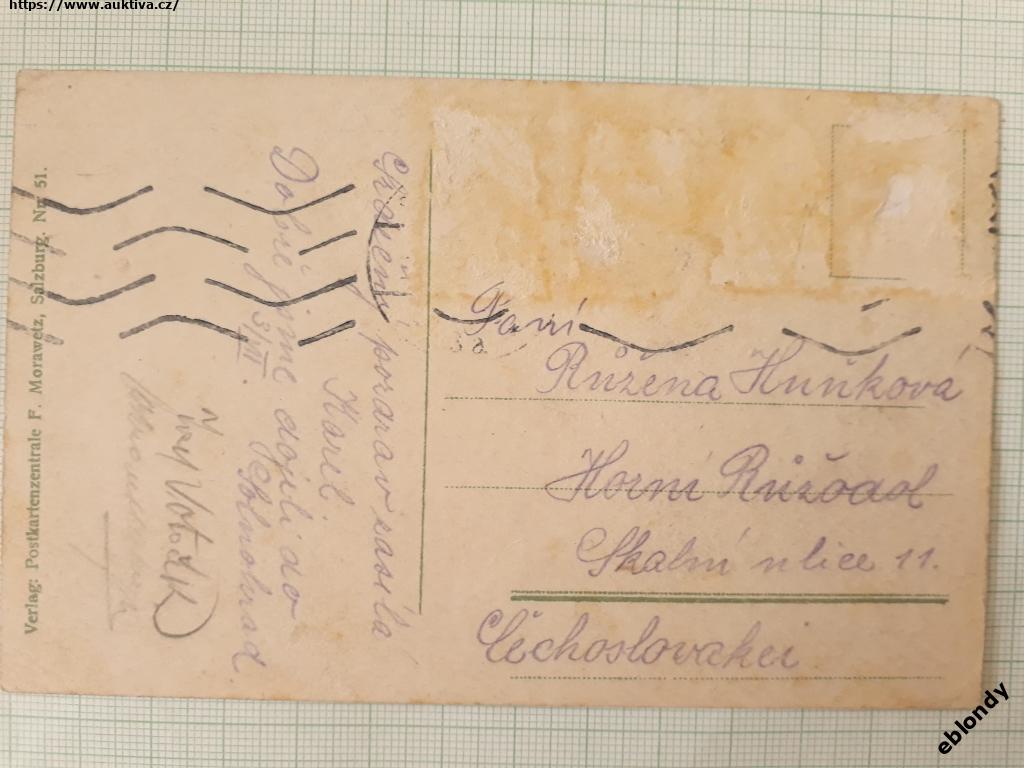 https://www.auktiva.cz/
Verlag: Postkartenzentrale F. Morawetz, Salzburg. Nr. 51.
pozdrav zasílá
Karel
Dobře jsme dojeli do
3/VII.
Votoček
Paní
Růžena Huňková
Horní Růžodol
Skalní ulice 11.
Čechoslovakei
eblondy